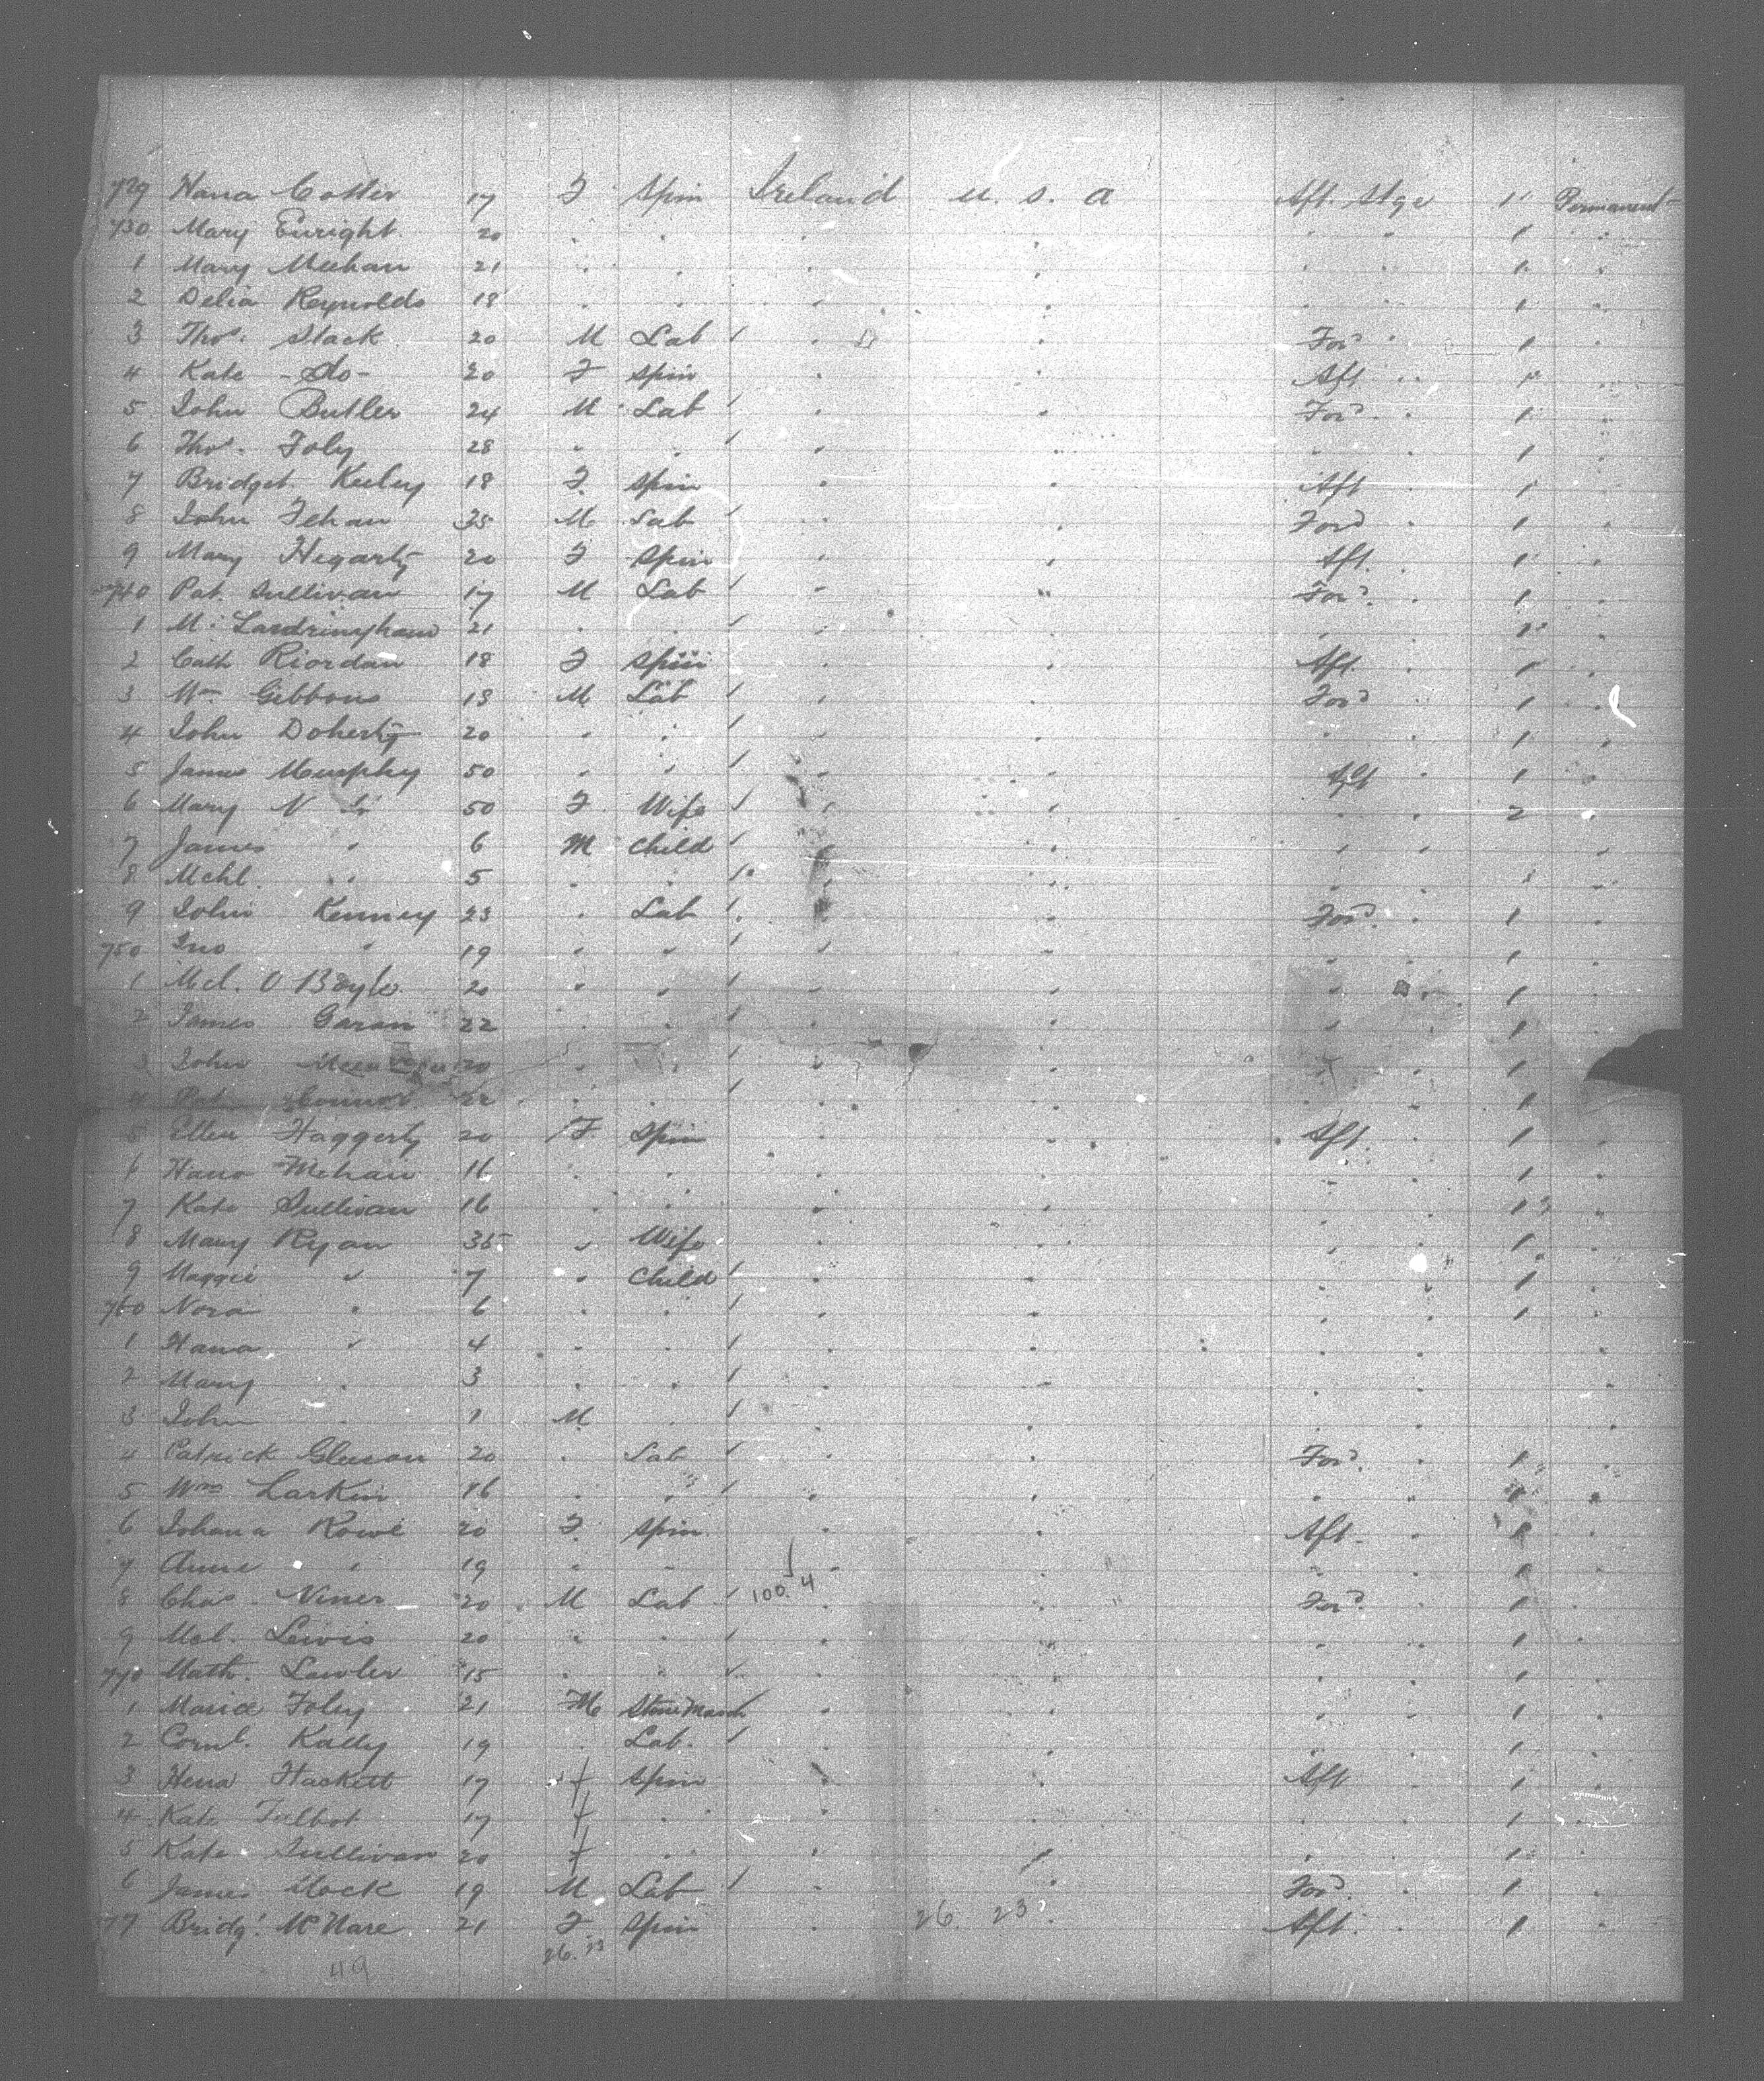 729 Hana Cotter 17 F Spin Ireland U. S. A Aft. Stge 1 Permanent
730 Mary Enright 20 " " " " " " 1 "
1 Mary Meehan 21 " " " " " " 1 "
2 Delia Reynolds 18 " " " " " " 1 "
3 Thos. Slack 20 M Lab / " " Ford " 1 "
4 Kate -Do- 20 F Spin " " Aft " 1 "
5 John Butler 24 M Lab / " " Ford " 1 "
6 Thos. Foly 28 " " / " " " 1 "
7 Bridget Keeley 18 F Spin " " Aft " 1 "
8 John Fehan 35 M Lab / " " Ford " 1 "
9 Mary Hegarty 20 F Spin " " Aft. " 1 "
740 Pat. Sullivan 17 M Lab / " " Ford. " 1 "
1 M. 21 " " / " " " " 1 "
2 Cath Riordan 18 F Spin " " Aft. " 1 "
3 Wm Gibbons 18 M Lab / " " Ford " 1 "
4 John Doherty 20 " " / " " " 1 "
5 James Murphy 50 " " / " " Aft " 1 "
6 Mary 50 F Wife / " " " " 2 "
7 James " 6 M Child / " " " " "
8 Mchl. " 5 " " / " " " " "
9 John Kenney 23 " Lab / " " Ford. " 1 "
750 Jno " 19 " " / " " " " 1 "
1 Mcl. O Boyle 20 " " / " " " 1
2 James Garan 22 " " / " " " 1
3 John 20 " " / " " " " 1
4 Pat Connor 22 " " / " " " " 1
5 Ellen Haggerty 20 F Spin " " Aft. " 1 "
6 Hana Mehan 16 " " " " " " 1 "
7 Kate Sullivan 16 " " " " " " 1 "
8 Mary Ryan 35 " Wife " " " " 1 "
9 Maggie " 7 " Child / " " " " 1 "
760 Nora " 6 " " / " " " " 1 "
1 Hana " 4 " " / " " " " "
2 Mary " 3 " " / " " " " "
3 John " 1 M " / " " " " "
4 Patrick Gleeson 20 " Lab / " " Ford. " 1 "
5 Wm Larkin 16 " " / " " " " 1 "
6 Johana Rowe 20 F Spin " " Aft. " 1 "
7 Anne " 19 " " " " " " 1 "
8 Chas. Niner 20 M Lab / 100. 4 " " Ford. " 1 "
9 Mcl. Lewis 20 " " / " " " " 1 "
770 Math. Lawler 15 " " / " " " " 1
1 Marice Foley 21 M Stone Mason / " " " " 1 "
2 Cornl. Kally 19 " Lab. / " " " 1 "
3 Hena Hackett 17 f Spin " " Aft " 1 "
4 Kate Talbot 17 f " " " " " 1 "
5 Kate Sullivan 20 f " " " " " 1 "
6 James Mock 19 M Lab / " " Ford. " 1 "
77 Bridgt. McNare 21 F Spin " 26. 23 Aft. " 1 "
26. 23
119